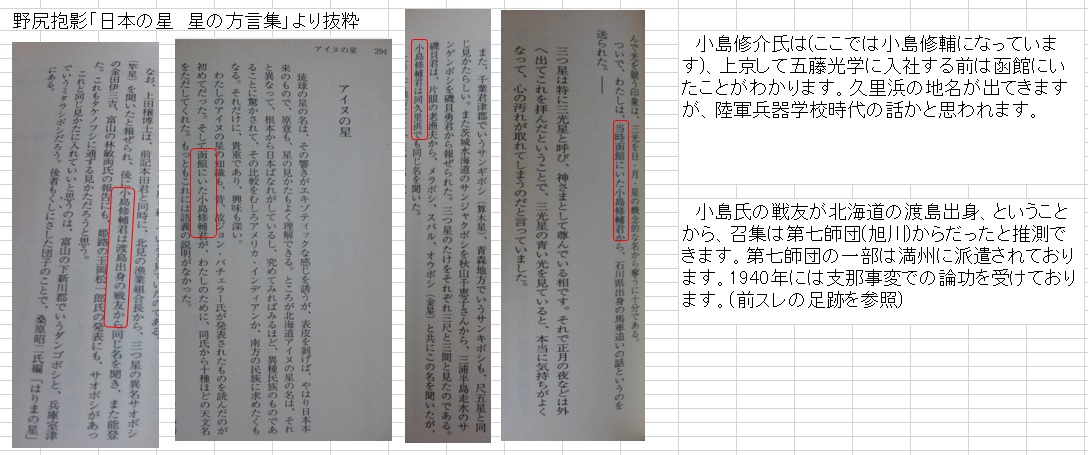 野尻抱影「日本の星　星の方言集」より抜粋
なお、上田穣博士は、前記本田君と同時に、北見の漁業組合長から、三つ星の異名サオボシ
（竿星）を聞いたと報ぜられ、後に小島修輔君は渡島出身の戦友から同じ名を聞き、また能登
の金田伊三吉、富山の林敏両氏の報告にも、姫路の玉岡松一郎氏の発表にも、サオボシがあっ
た。これもタケノフシに通ずる見かただろうと思う。
これと同じ見かたに入れていいと思うのは、富山の下新川郡でいうダンゴボシと、兵庫室津
でいうミタラシボシだろう。後者もくしにさした団子のことで、桑原昭二氏編「はりまの星」
にある。
アイヌの星
294
アイヌの星
琉球の星の名は、その響きがエキゾティックな感じを誘うが、表皮を剥げば、やはり日本本
来のもので、原意も、星の見かたもよく理解できる。ところが北海道アイヌの星の名は、それ
と異なって、根本から日本ばなれがしているし、究めてみればみるほど、異種民族のものであ
ることに驚かされて、その比較をむしろアメリカ・インディアンか、南方の民族に求めたくも
なる。それだけに、貴重であり、興味も深い。
わたしのアイヌの星の知識も、昔、故ジョン・バチェラー氏が発表されたものを読んだのが
初めてだった。そして函館にいた小島修輔君が、わたしのために、同氏から十種ほどの天文名
をただしてくれた。もっともこれには語義の説明がなかった。
また、千葉君津郡でいうサンギボシ（算木星）、青森地方でいうサンキボシも、尺五星と同
じ見かたらしい。また茨城水海道のサンジャクボシを秋山千恵子さんから、三浦半島走水のサ
ンゲンボシを磯貝勇君から報ぜられた。三つ星のたけをそれぞれ三尺と三間と見たのである。
磯貝君は、片眼の老漁夫から、メラボシ、スバル、オウボシ（金星）と共にこの名を聞いたが、
小島修輔君は同久里浜でも同じ名を聞いた。
んで光を競う印象は、三光を日・月・星の概念的な名から奪うに十分である。
ついで、わたしは、当時函館にいた小島修輔君から、石川県出身の馬車追いの話というのを
送られた。――
三つ星は特に三光星と呼び、神さまとして尊んでいる相です。それで正月の夜などは外
へ出てこれを拝んだということで、三光星の青い光を見ていると、本当に気持ちがよく
なって、心の汚れが取れてしまうのだと言っていました。
小島修介氏は(ここでは小島修輔になっていま
す)、上京して五藤光学に入社する前は函館にい
たことがわかります。久里浜の地名が出てきます
が、陸軍兵器学校時代の話かと思われます。
小島氏の戦友が北海道の渡島出身、ということ
から、召集は第七師団(旭川)からだったと推測で
きます。第七師団の一部は満州に派遣されており
ます。1940年には支那事変での論功を受けてお
ります。(前スレの足跡を参照)